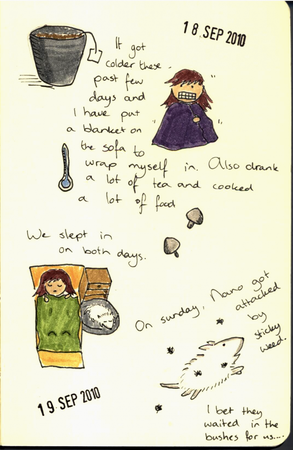 18. SEP 2010
It got
colder these
past few
days and
I have put
a blanket on
the sofa to
wrap myself in. Also drank
a lot of tea and cooked
a lot of food
We slept in
on both days.
On sunday, Nano got
attacked
by
sticky
weed.
19 SEP 2010
I bet they
waited in the
bushes for us....